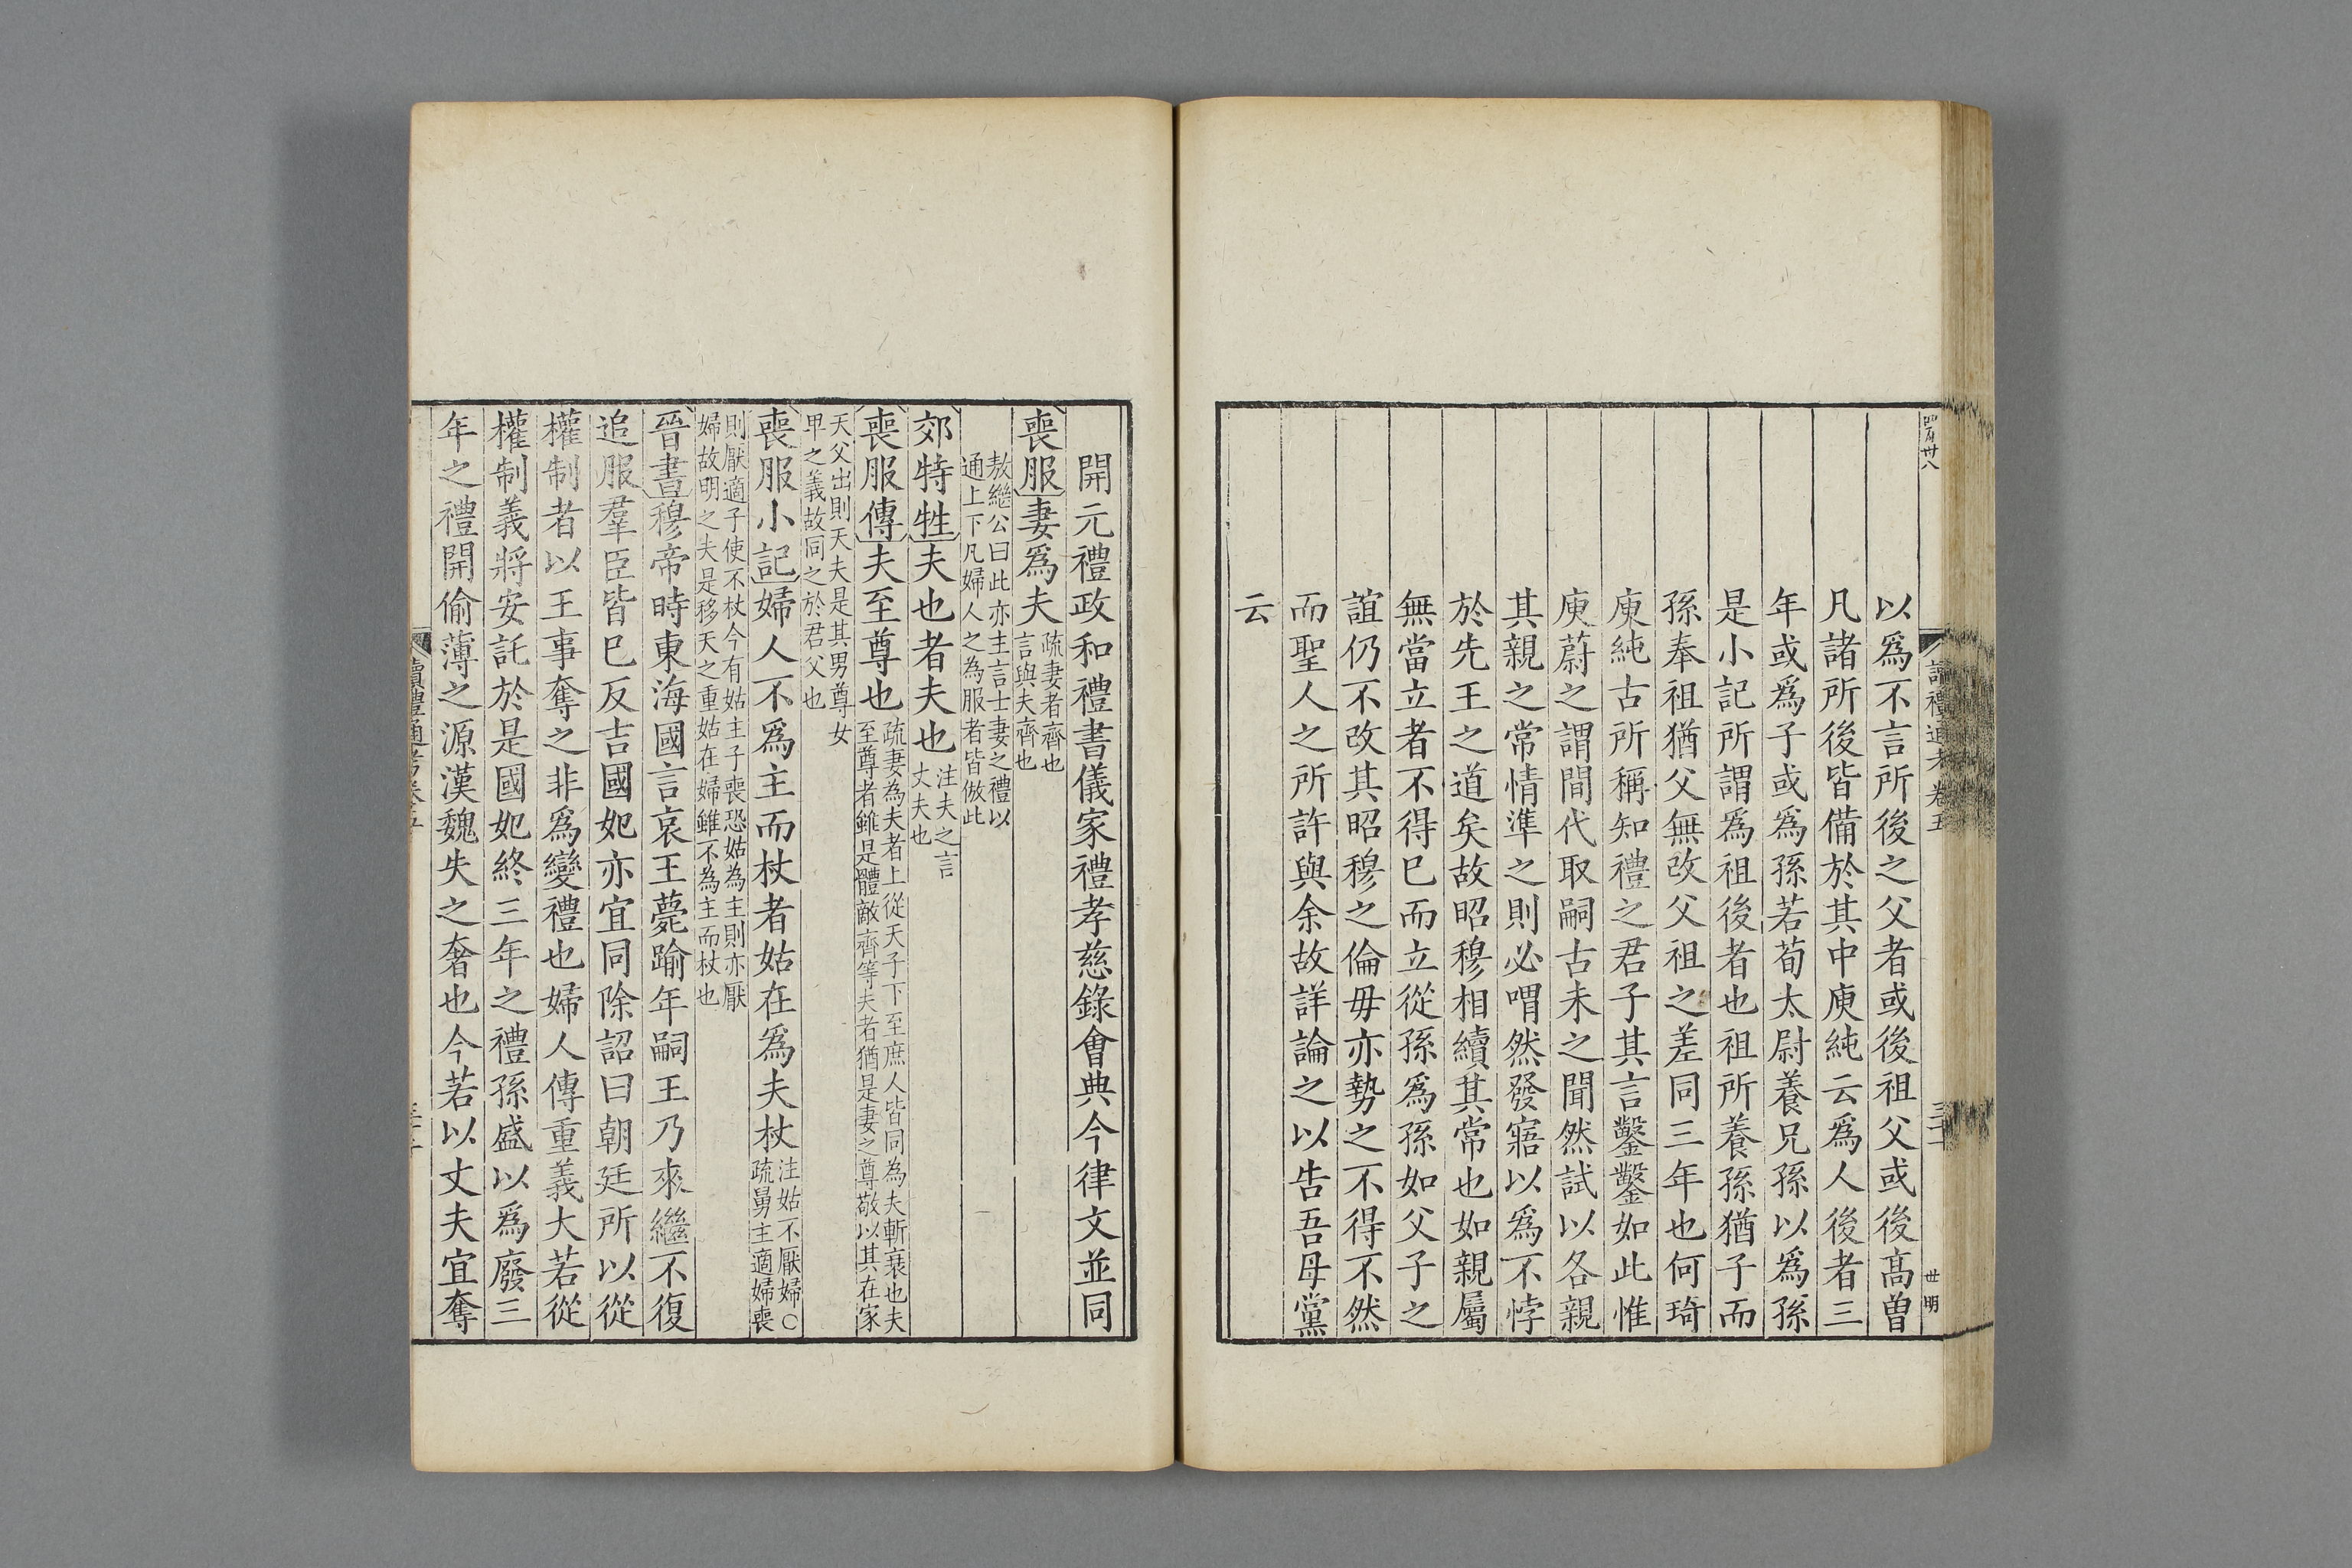 讀禮通考卷五
以爲不言所後之父者或後祖父或後髙曽
凡諸所後皆備於其中庾純云爲人後者三
年或爲子或爲孫若荀太尉養兄孫以爲孫
是小記所謂爲祖後者也祖所養孫猶子而
孫奉祖猶父無改父祖之差同三年也何琦
庾純古所稱知禮之君子其言鑿鑿如此惟
庾蔚之謂間代取嗣古未之聞然試以各親
其親之常情準之則必喟然發寤以爲不悖
於先王之道矣故昭穆相續其常也如親屬
無當立者不得巳而立從孫爲孫如父子之
誼仍不改其昭穆之倫毋亦勢之不得不然
而聖人之所許與余故詳論之以告吾母黨
云
開元禮政和禮書儀家禮孝慈錄會典今律文並同
喪服妻爲夫疏妻者齊也
言與夫齊也
敖繼公曰此亦主言士妻之禮以
通上下凡婦人之為服者皆倣此
郊特牲夫也者夫也注夫之言
丈夫也
喪服傳夫至尊也疏妻為夫者上從天子下至庶人皆同為夫斬衰也夫
至尊者雖是體敵齊等夫者猶是妻之尊敬以其在家
天父出則天夫是其男尊女
卑之義故同之於君父也
喪服小記婦人不爲主而杖者姑在爲夫杖注姑不厭婦○
疏舅主適婦喪
則厭適子使不杖今有姑主子喪恐姑為主則亦厭
婦故明之夫是移天之重姑在婦雖不為主而杖也
晉書穆帝時東海國言哀王薨踰年嗣王乃來繼不復
追服羣臣皆巳反吉國妃亦宜同除詔曰朝廷所以從
權制者以王事奪之非爲變禮也婦人傳重義大若從
權制義將安託於是國妃終三年之禮孫盛以爲廢三
年之禮開偷薄之源漢魏失之奢也今若以丈夫宜奪
讀禮通考卷五